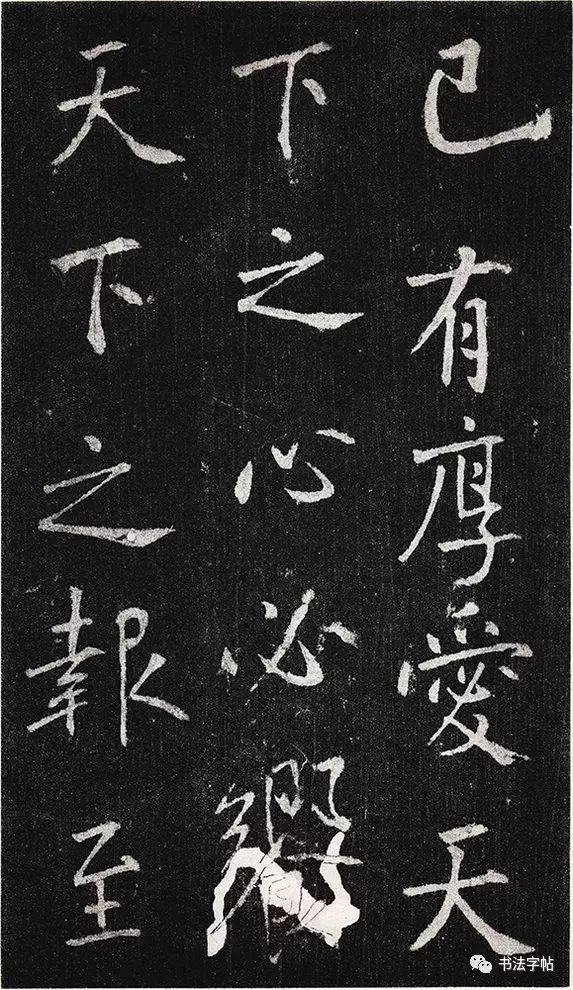 已有厚愛天
下之心必
天下之報至
书法字帖